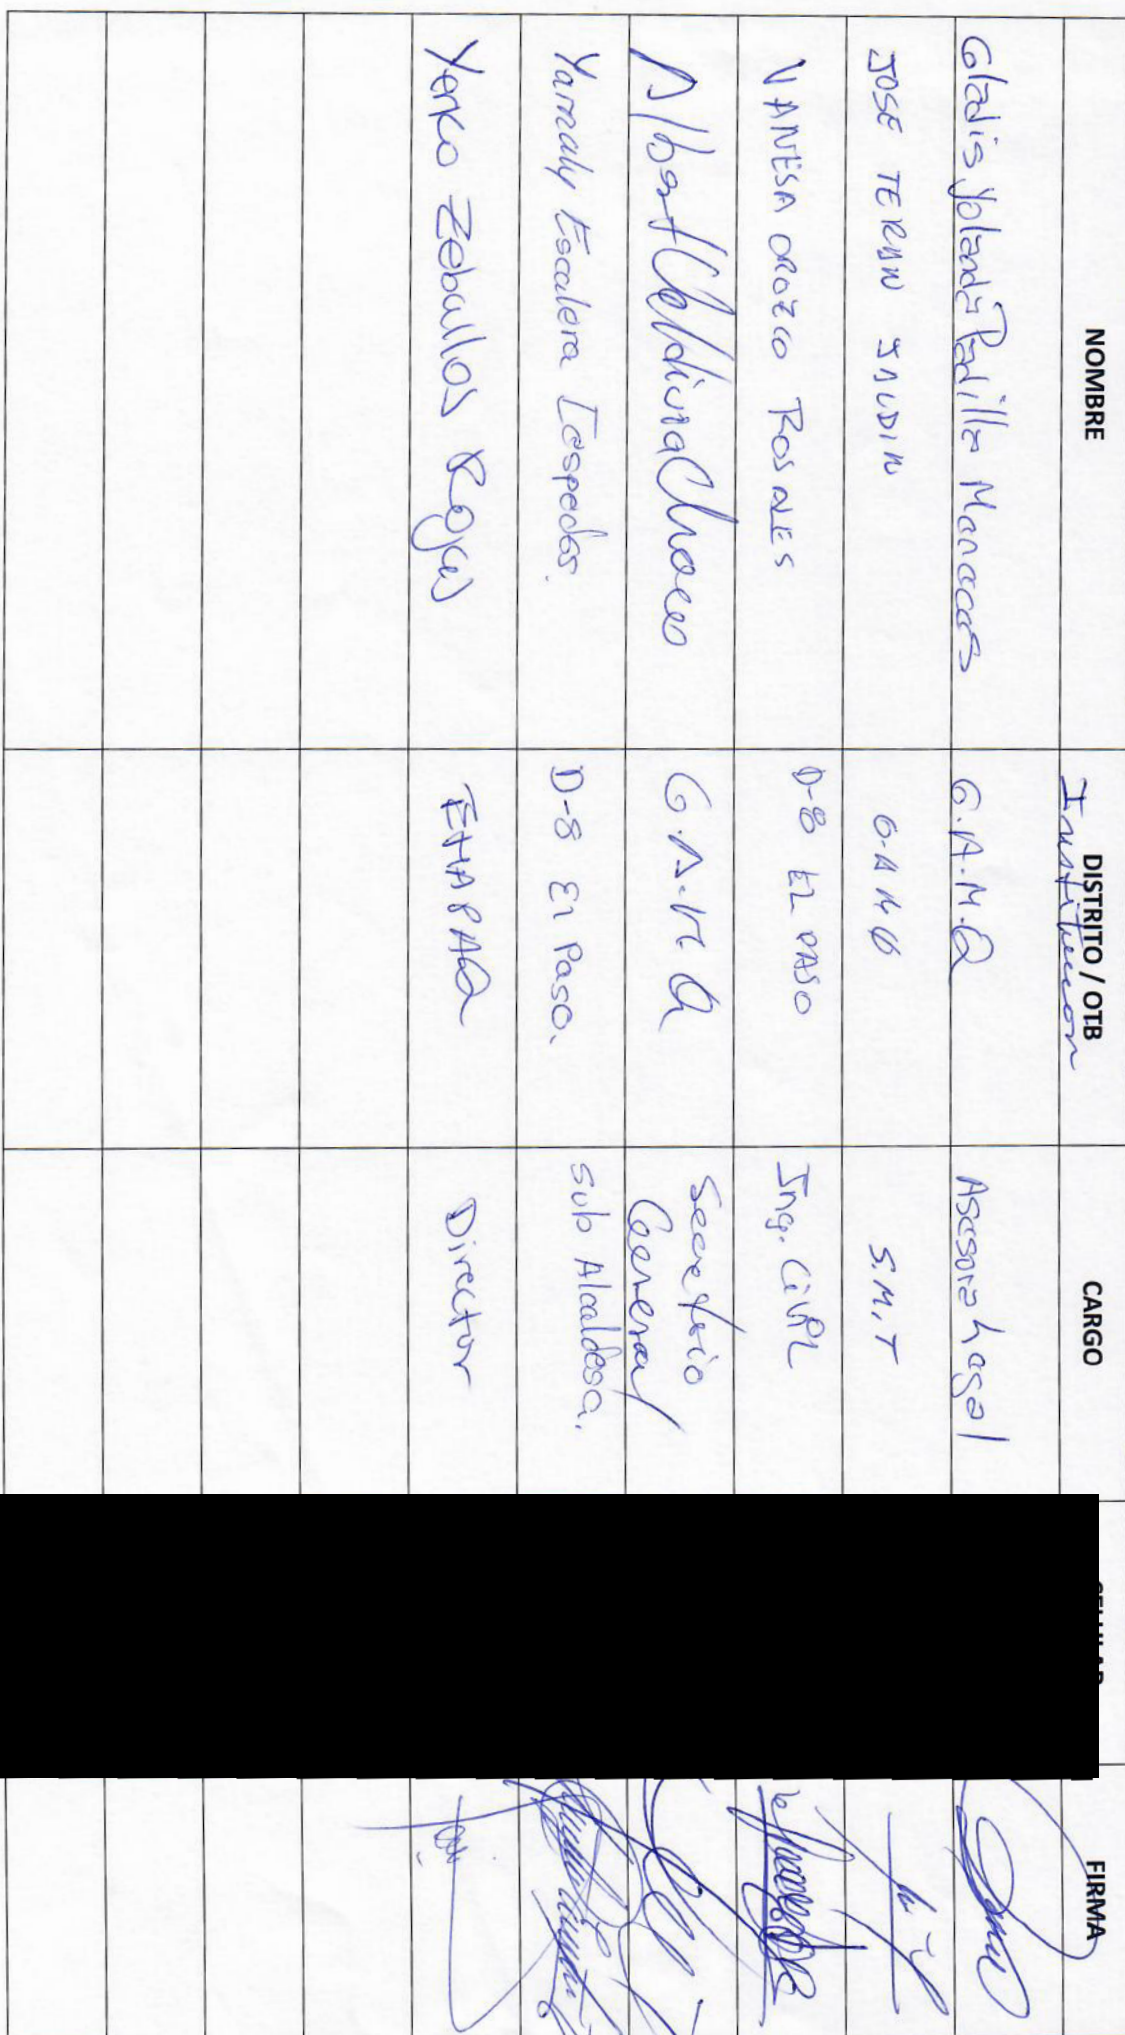 NOMBRE DISTRITO / OTB CARGO FIRMA
Institucion
Gladis Yolanda Padilla Manacas G.A.M.Q Asesora Legal
JOSE TERAN G.A.M.Q S.M.T
VANESA OROZCO ROSALES D-8 EL PASO Ing. CIVIL
Albert G.A.M.Q Secretario
General
Yamaly Escalera D-8 El Paso. Sub Alcaldesa.
Yerko Zeballos Rojas EMAPAQ Director